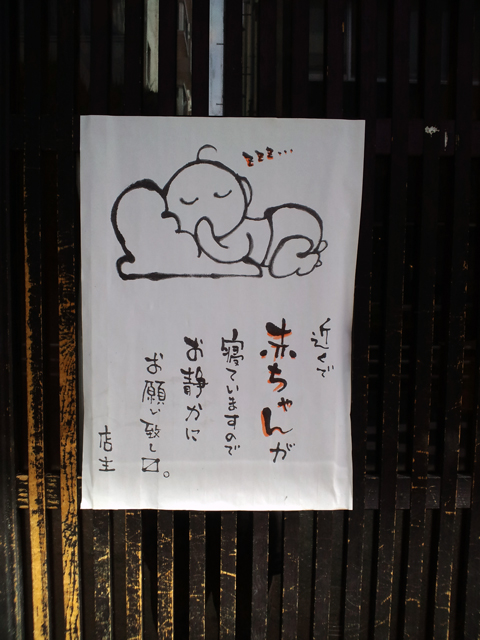 zzz...
近くで
赤ちゃんが
寝ていますので
お静かに
お願い致し〼。
店主